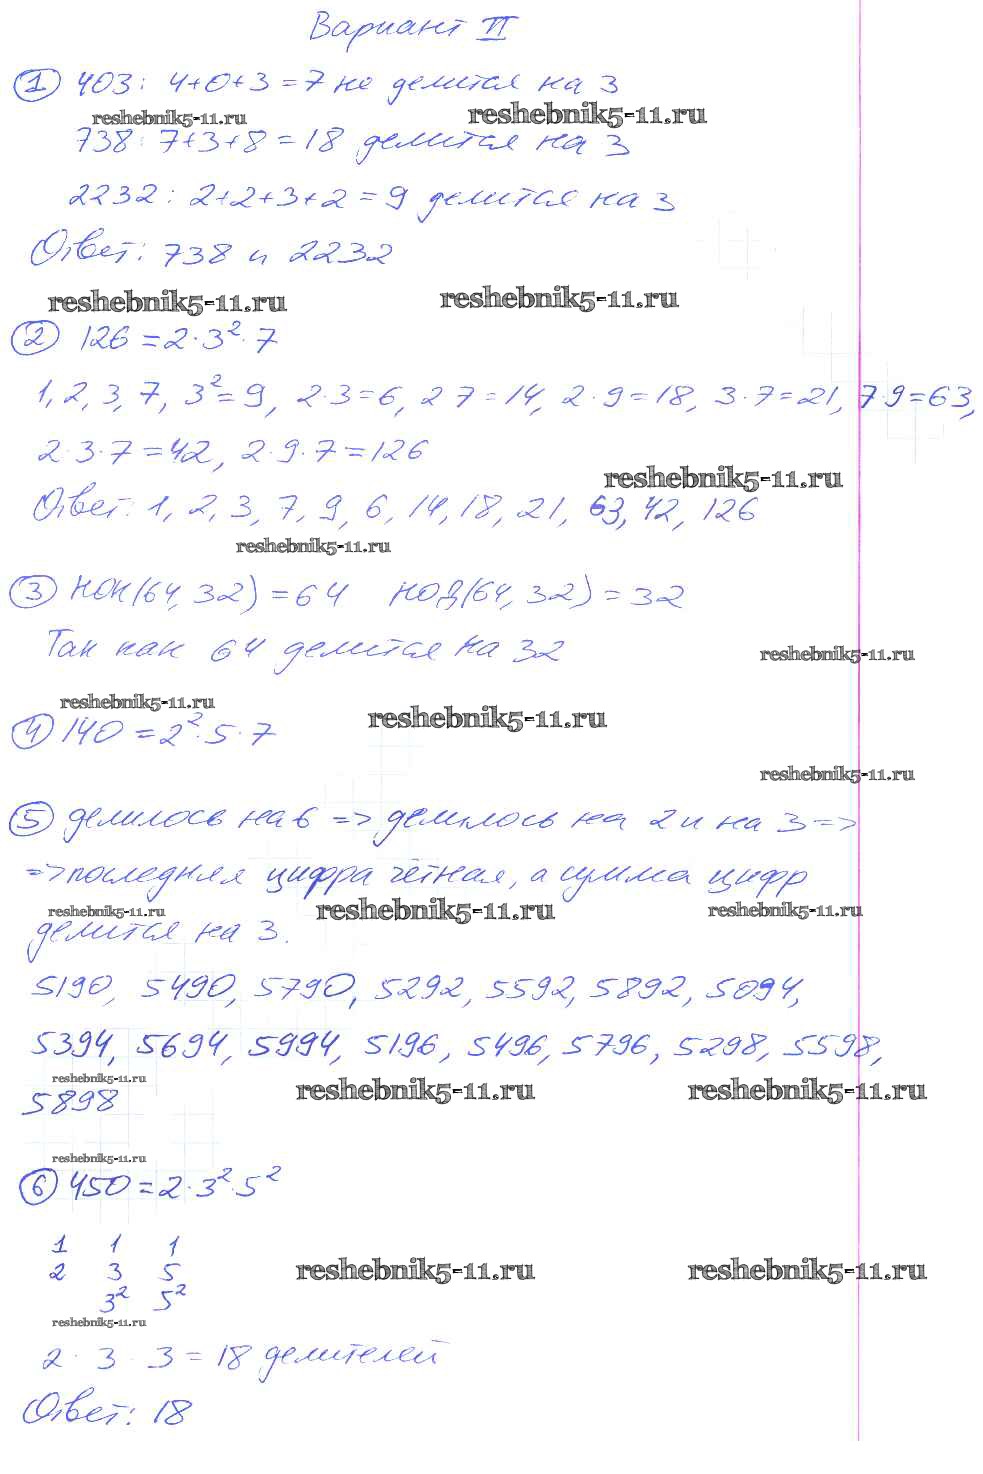 Вариант II
① 403: 4+0+3=7 не делится на 3
reshebnik5-11.ru reshebnik5-11.ru
738: 7+3+8=18 делится на 3
2232: 2+2+3+2=9 делится на 3
Ответ: 738 и 2232
reshebnik5-11.ru reshebnik5-11.ru
② 126=2·3²·7
1, 2, 3, 7, 3²=9, 2·3=6, 2 7=14, 2·9=18, 3·7=21, 7·9=63,
2·3·7=42, 2·9·7=126
reshebnik5-11.ru
Ответ: 1, 2, 3, 7, 9, 6, 14, 18, 21, 63, 42, 126
reshebnik5-11.ru
③ НОК(64, 32)=64 НОД(64, 32)=32
Так как 64 делится на 32
reshebnik5-11.ru
reshebnik5-11.ru reshebnik5-11.ru
④ 140=2²·5·7
reshebnik5-11.ru
⑤ делилось на 6 => делилось на 2 и на 3 =>
=> последняя цифра чётная, а сумма цифр
reshebnik5-11.ru reshebnik5-11.ru reshebnik5-11.ru
делится на 3.
5190, 5490, 5790, 5292, 5592, 5892, 5094,
5394, 5694, 5994, 5196, 5496, 5796, 5298, 5598,
reshebnik5-11.ru reshebnik5-11.ru reshebnik5-11.ru
5898
reshebnik5-11.ru
⑥ 450=2·3²·5²
1 1 1
2 3 5
reshebnik5-11.ru reshebnik5-11.ru
3² 5²
reshebnik5-11.ru
2 · 3 · 3 = 18 делителей
Ответ: 18